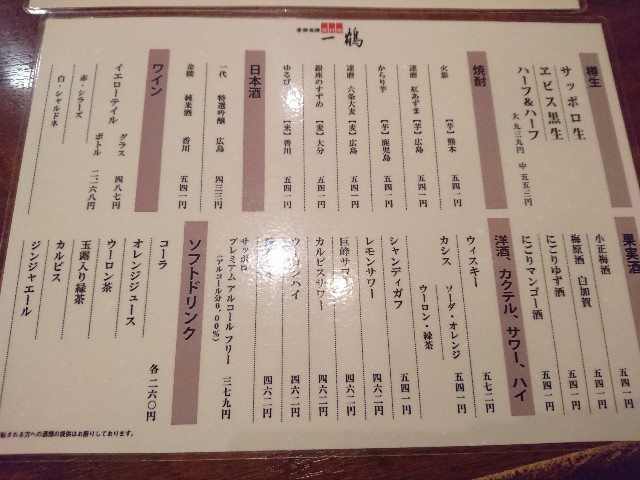 一鶴
樽生
サッポロ生
ヱビス黒生
ハーフ&ハーフ
大 九三九円 中 五五三円
焼酎
火影 【芋】熊本 五四一円
達磨 紅あずま 【芋】広島 五四一円
からり芋 【芋】鹿児島 五四一円
達磨 六条大麦 【麦】広島 五四一円
銀座のすずめ 【麦】大分 五四一円
ゆるび 【米】香川 五四一円
日本酒
一代 特選吟醸 広島 四三三円
金陵 純米酒 香川 五四一円
ワイン
イエローテイル グラス 四八七円
ボトル 二、二六八円
赤・シラーズ
白・シャルドネ
果実酒
小正梅酒 五四一円
梅原酒 白加賀 五四一円
にごりゆず酒 五四一円
にごりマンゴー酒 五四一円
洋酒、カクテル、サワー、ハイ
ウィスキー 五七二円
カシス ソーダ・オレンジ 五四一円
ウーロン・緑茶
シャンディガフ 五四一円
レモンサワー 四六二円
巨峰サワー 四六二円
カルピスサワー 四六二円
ウーロンハイ 四六二円
四六二円
サッポロ
プレミアム アルコール フリー 三七九円
(アルコール分0.00%)
ソフトドリンク
コーラ
オレンジジュース
ウーロン茶
玉露入り緑茶
カルピス
ジンジャエール
各 二六〇円
転される方への酒類の提供はお断りしております。